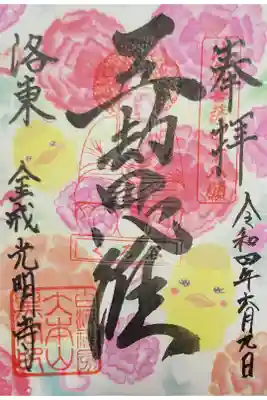 奉拝
令和四年六月九日
五劫思惟
洛東
金戒光明寺
大本山